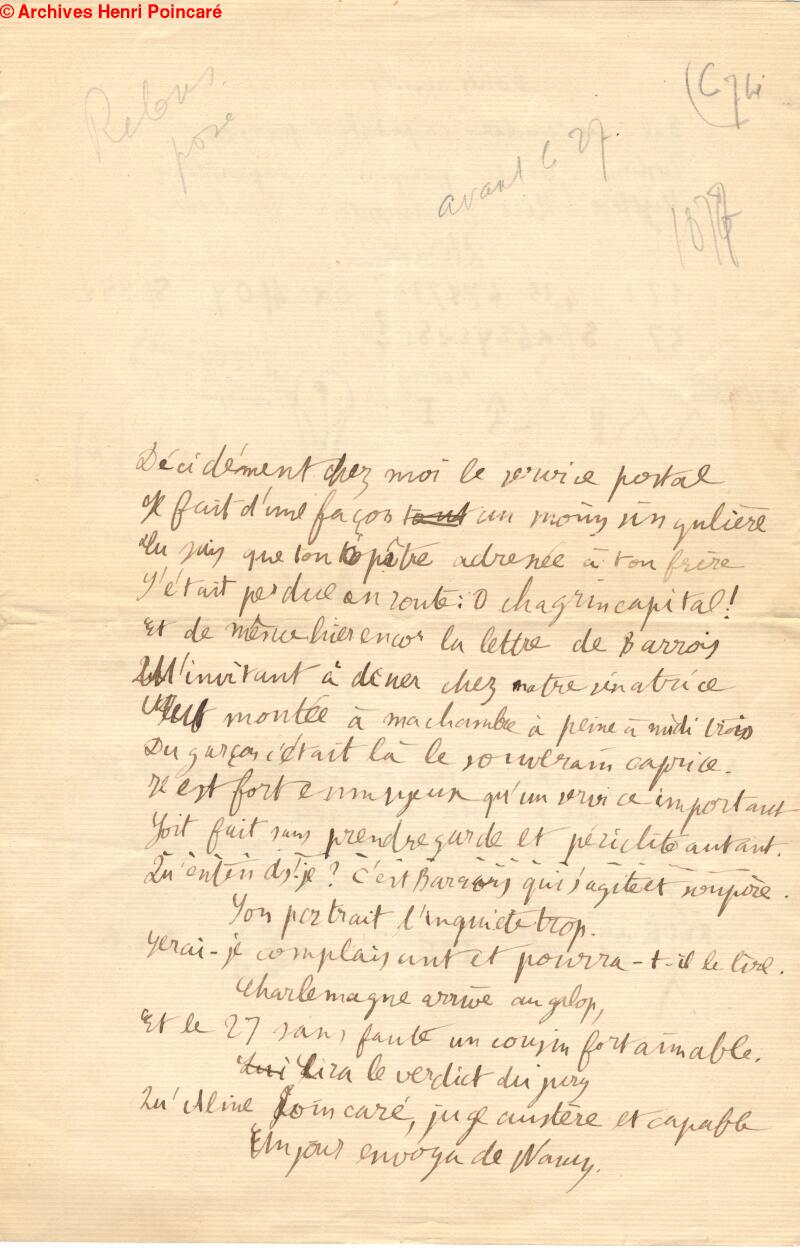 © Archives Henri Poincaré
avant le 27
1877
Décidément chez moi le service postal
Se fait d'une façon tout un moins singulière
Tu sais que ton épître adressée à ton frère
S'était perdue en route : O chagrin capital !
Et de même hier encor la lettre de Barrois
M'invitant à diner chez notre sénatrice
montée à ma chambre à peine à midi trois
Du garçon c'était là le souverain caprice.
Il est fort ennuyeux qu'un service important
Soit fait sans prendre garde et périclite autant.
Qu'entends-je ? C'est Barrois qui s'agite et soupire.
Son portrait l'inquiète trop.
Serai-je complaisant et pourra-t-il le lire.
Charlemagne arrive au galop,
Et le 27 sans faute un cousin fort aimable.
Lui Lira le verdict du jury
Qu'Aline Poincaré, juge austère et capable
Un jour envoya de Nancy.